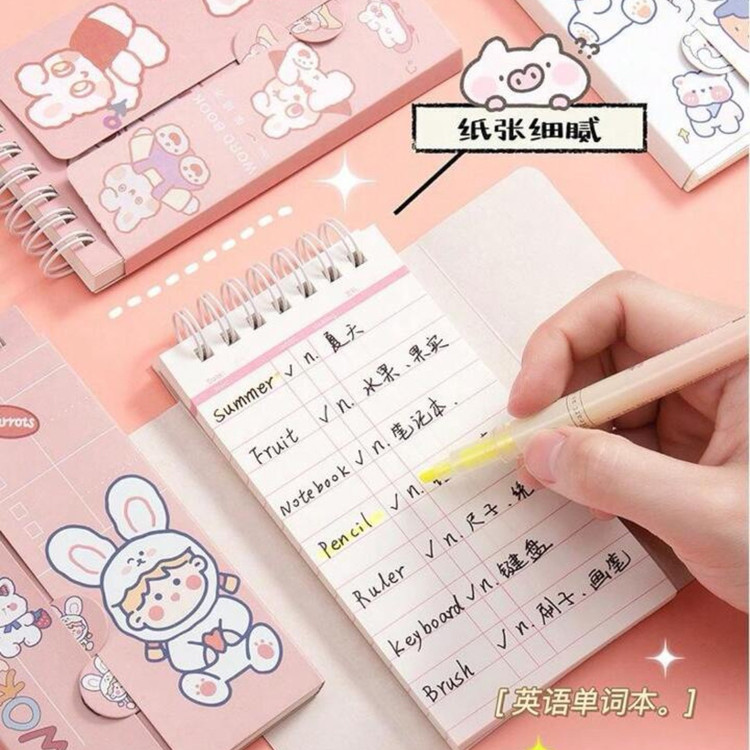 WORD BOOK
纸张细腻
Date:
Summer ✓ n. 夏天
Fruit ✓ n. 水果、果实
Notebook ✓ n. 笔记本.
Pencil ✓ n.
Ruler ✓ n. 尺子、统
Keyboard ✓ n. 键盘
Brush ✓ n. 刷子、画笔
[英语单词本。]